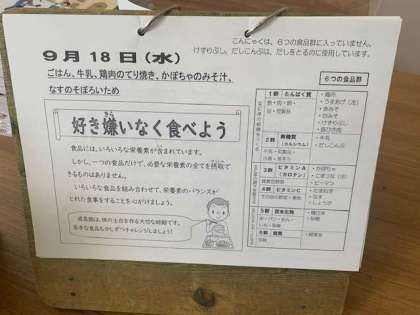 9月18日(水)
ごはん、牛乳、鶏肉のてり焼き、かぼちゃのみそ汁、
なすのそぼろいため
こんにゃくは、6つの食品群に入っていません。
けずりぶし、だしこんぶは、だしをとるのに使用しています。
好き嫌いなく食べよう
食品には、いろいろな栄養素が含まれています。
しかし、一つの食品だけで、必要な栄養素の全てを摂取で
きるものはありません。
いろいろな食品を組み合わせて、栄養素のバランスが
とれた食事をすることを心がけましょう。
成長期は、体の土台を作る大切な時期です。
苦手な食品も少しずつチャレンジしましょう!
6つの食品群
1群 たんぱく質
・鶏肉
・赤みそ
・白みそ
・けずりぶし
2群 無機質
(カルシウム)
・牛乳
・だしこんぶ
3群 ビタミンA
(カロテン)
・かぼちゃ
・ピーマン
4群 ビタミンC
・たまねぎ
・なす
・しょうが
5群 炭水化物
・砂糖
6群 脂質